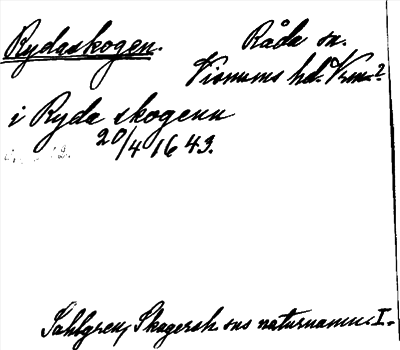 Rydaskogen. Råda sn.
Visnums hd. Vrml.?
i Ryda skogenn
20/4 1643.
Sahlgren, Skagersh. sns naturnamn. I.